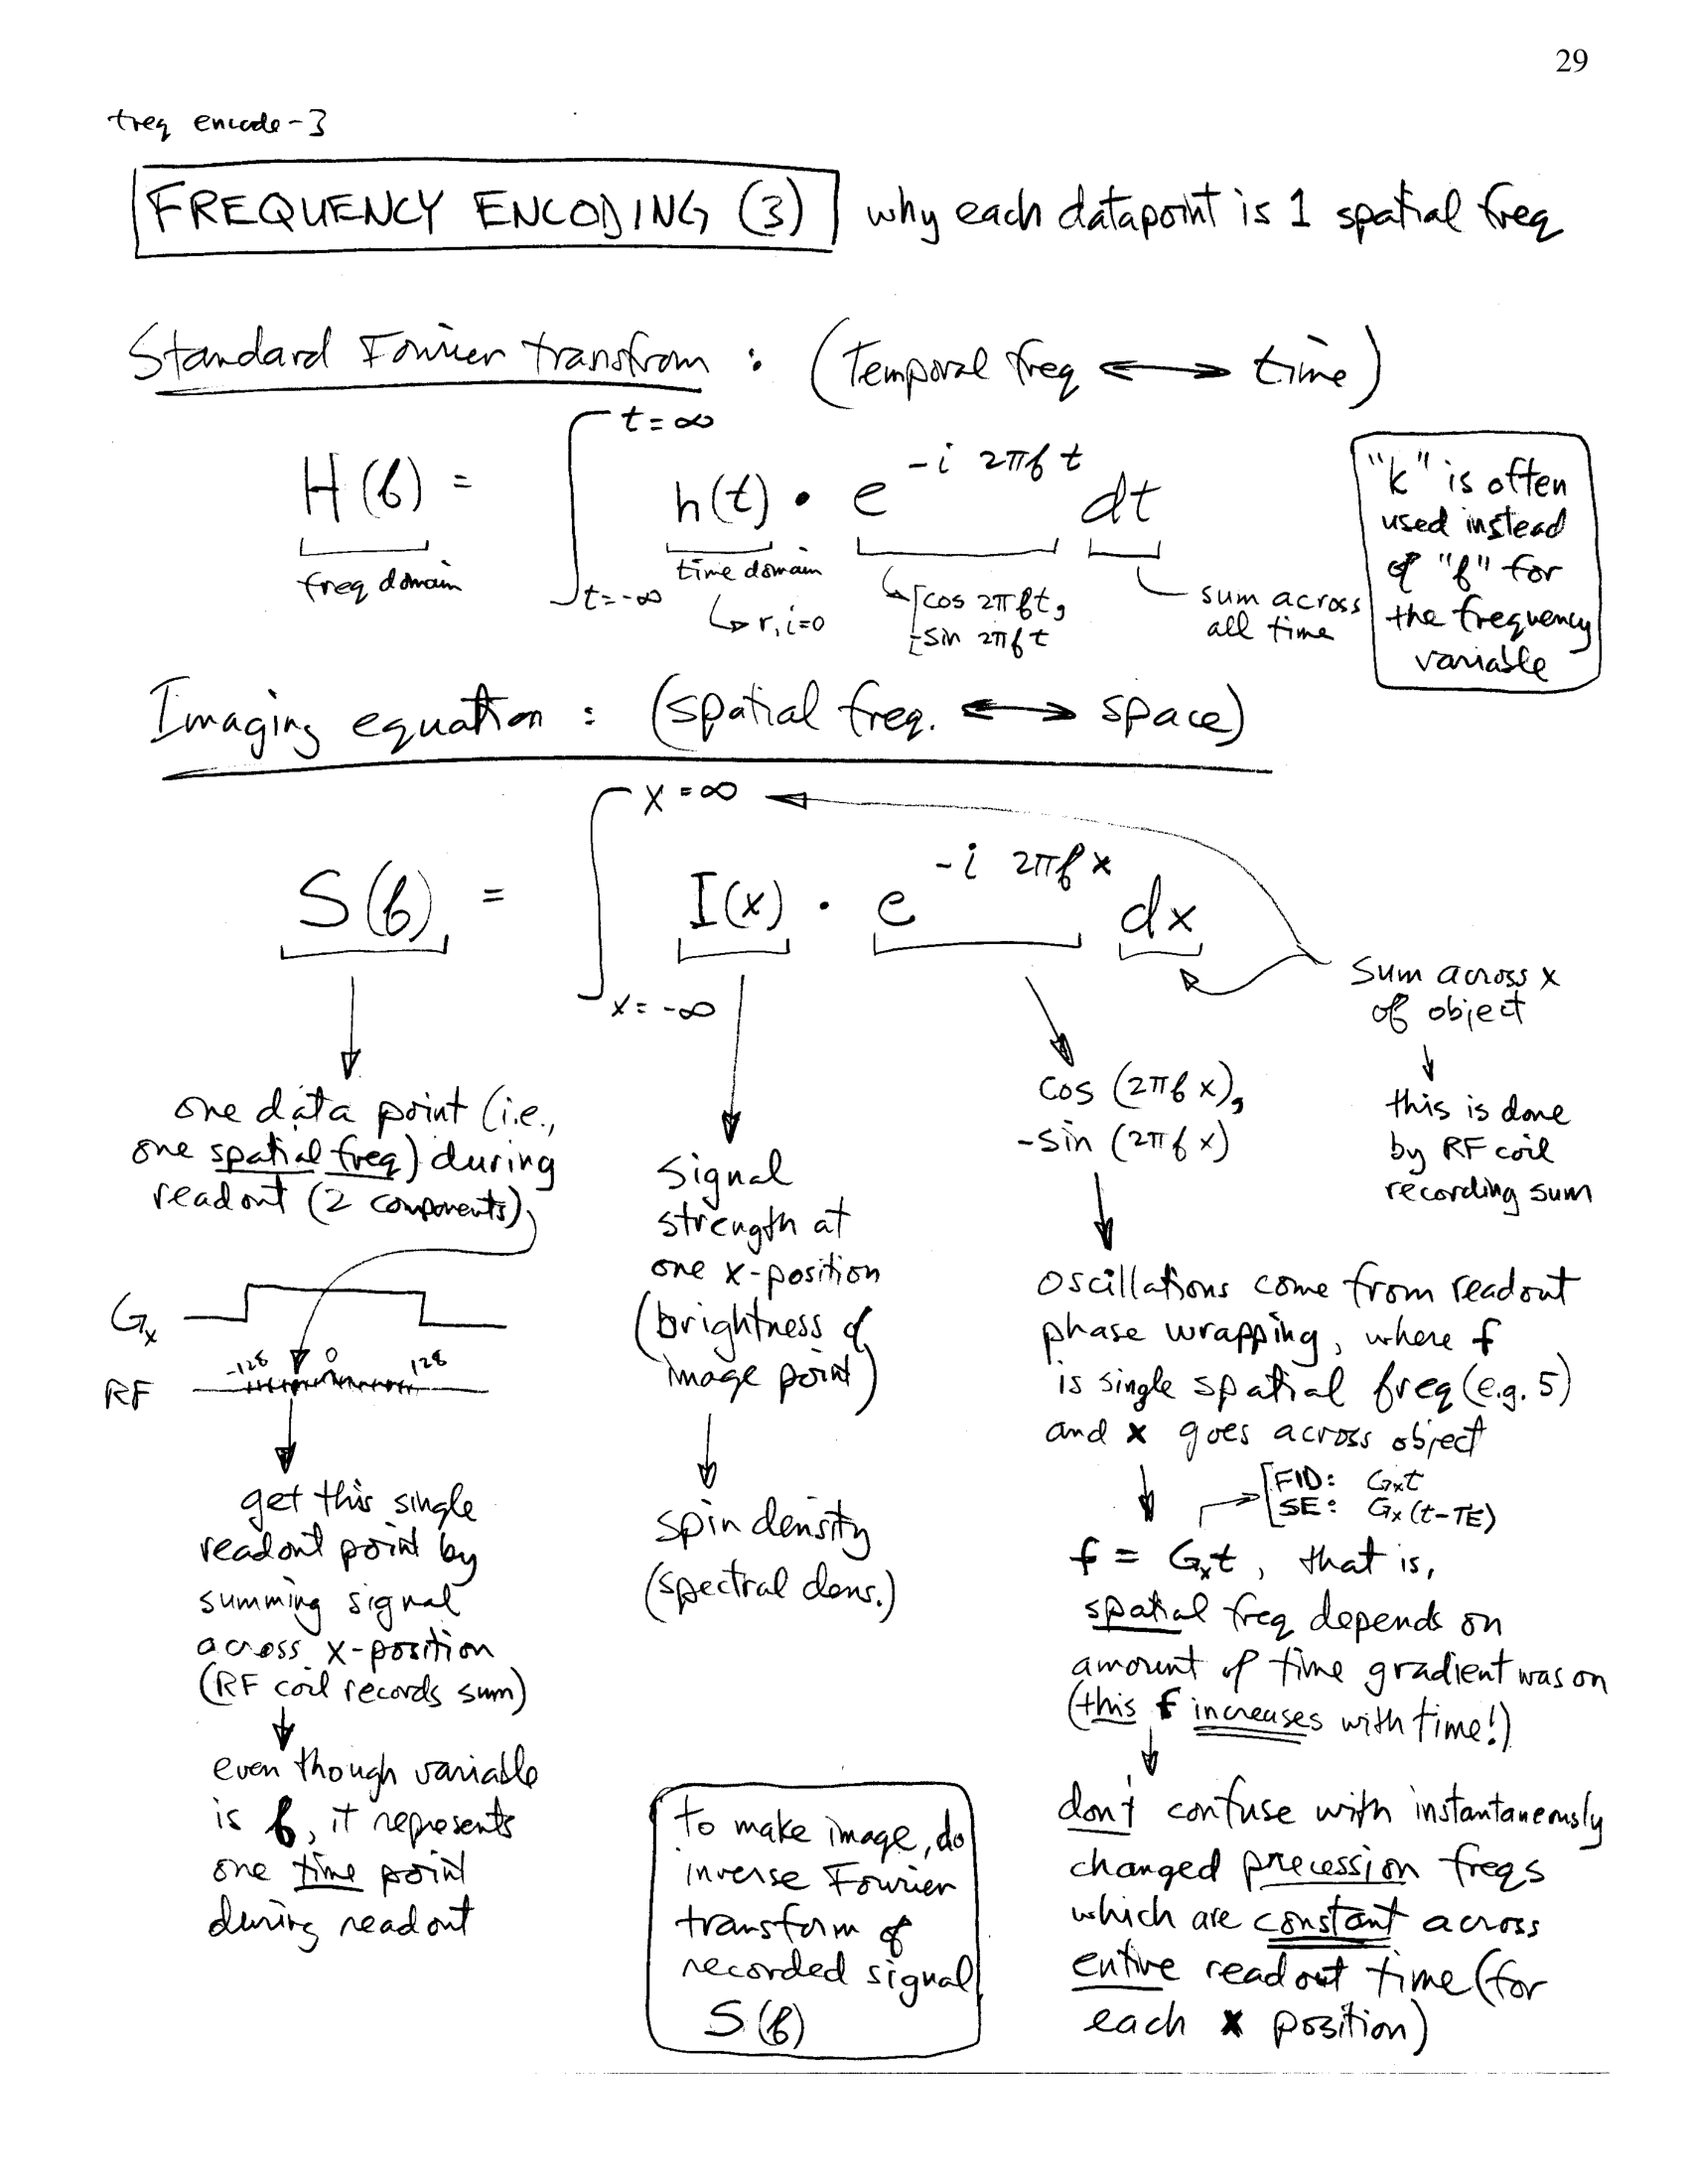 29
freq encode-3
FREQUENCY ENCODING (3) why each datapoint is 1 spatial freq
Standard Fourier transfrom : (Temporal freq ↔ time)
H(f) = ∫ t=∞ t=-∞ h(t) · e^{-i 2πf t} dt
freq domain
time domain
↳ r, i=0
cos 2πft,
-sin 2πft
sum across
all time
"k" is often
used instead
of "f" for
the frequency
variable
Imaging equation : (spatial freq. ↔ space)
S(f) = ∫ x=∞ x=-∞ I(x) · e^{-i 2πf x} dx
sum across x
of object
this is done
by RF coil
recording sum
one data point (i.e.,
one spatial freq) during
readout (2 components)
Gx
-128 0 128
RF
get this single
readout point by
summing signal
across x-position
(RF coil records sum)
even though variable
is f, it represents
one time point
during readout
signal
strength at
one x-position
(brightness of
image point)
spin density
(spectral dens.)
to make image, do
inverse Fourier
transform of
recorded signal
S(f)
cos (2πf x),
-sin (2πf x)
oscillations come from readout
phase wrapping, where f
is single spatial freq (e.g. 5)
and x goes across object
FID: Gxt
SE: Gx(t-TE)
f = Gxt, that is,
spatial freq depends on
amount of time gradient was on
(this f increases with time!)
don't confuse with instantaneously
changed precession freqs
which are constant across
entire readout time (for
each x position)